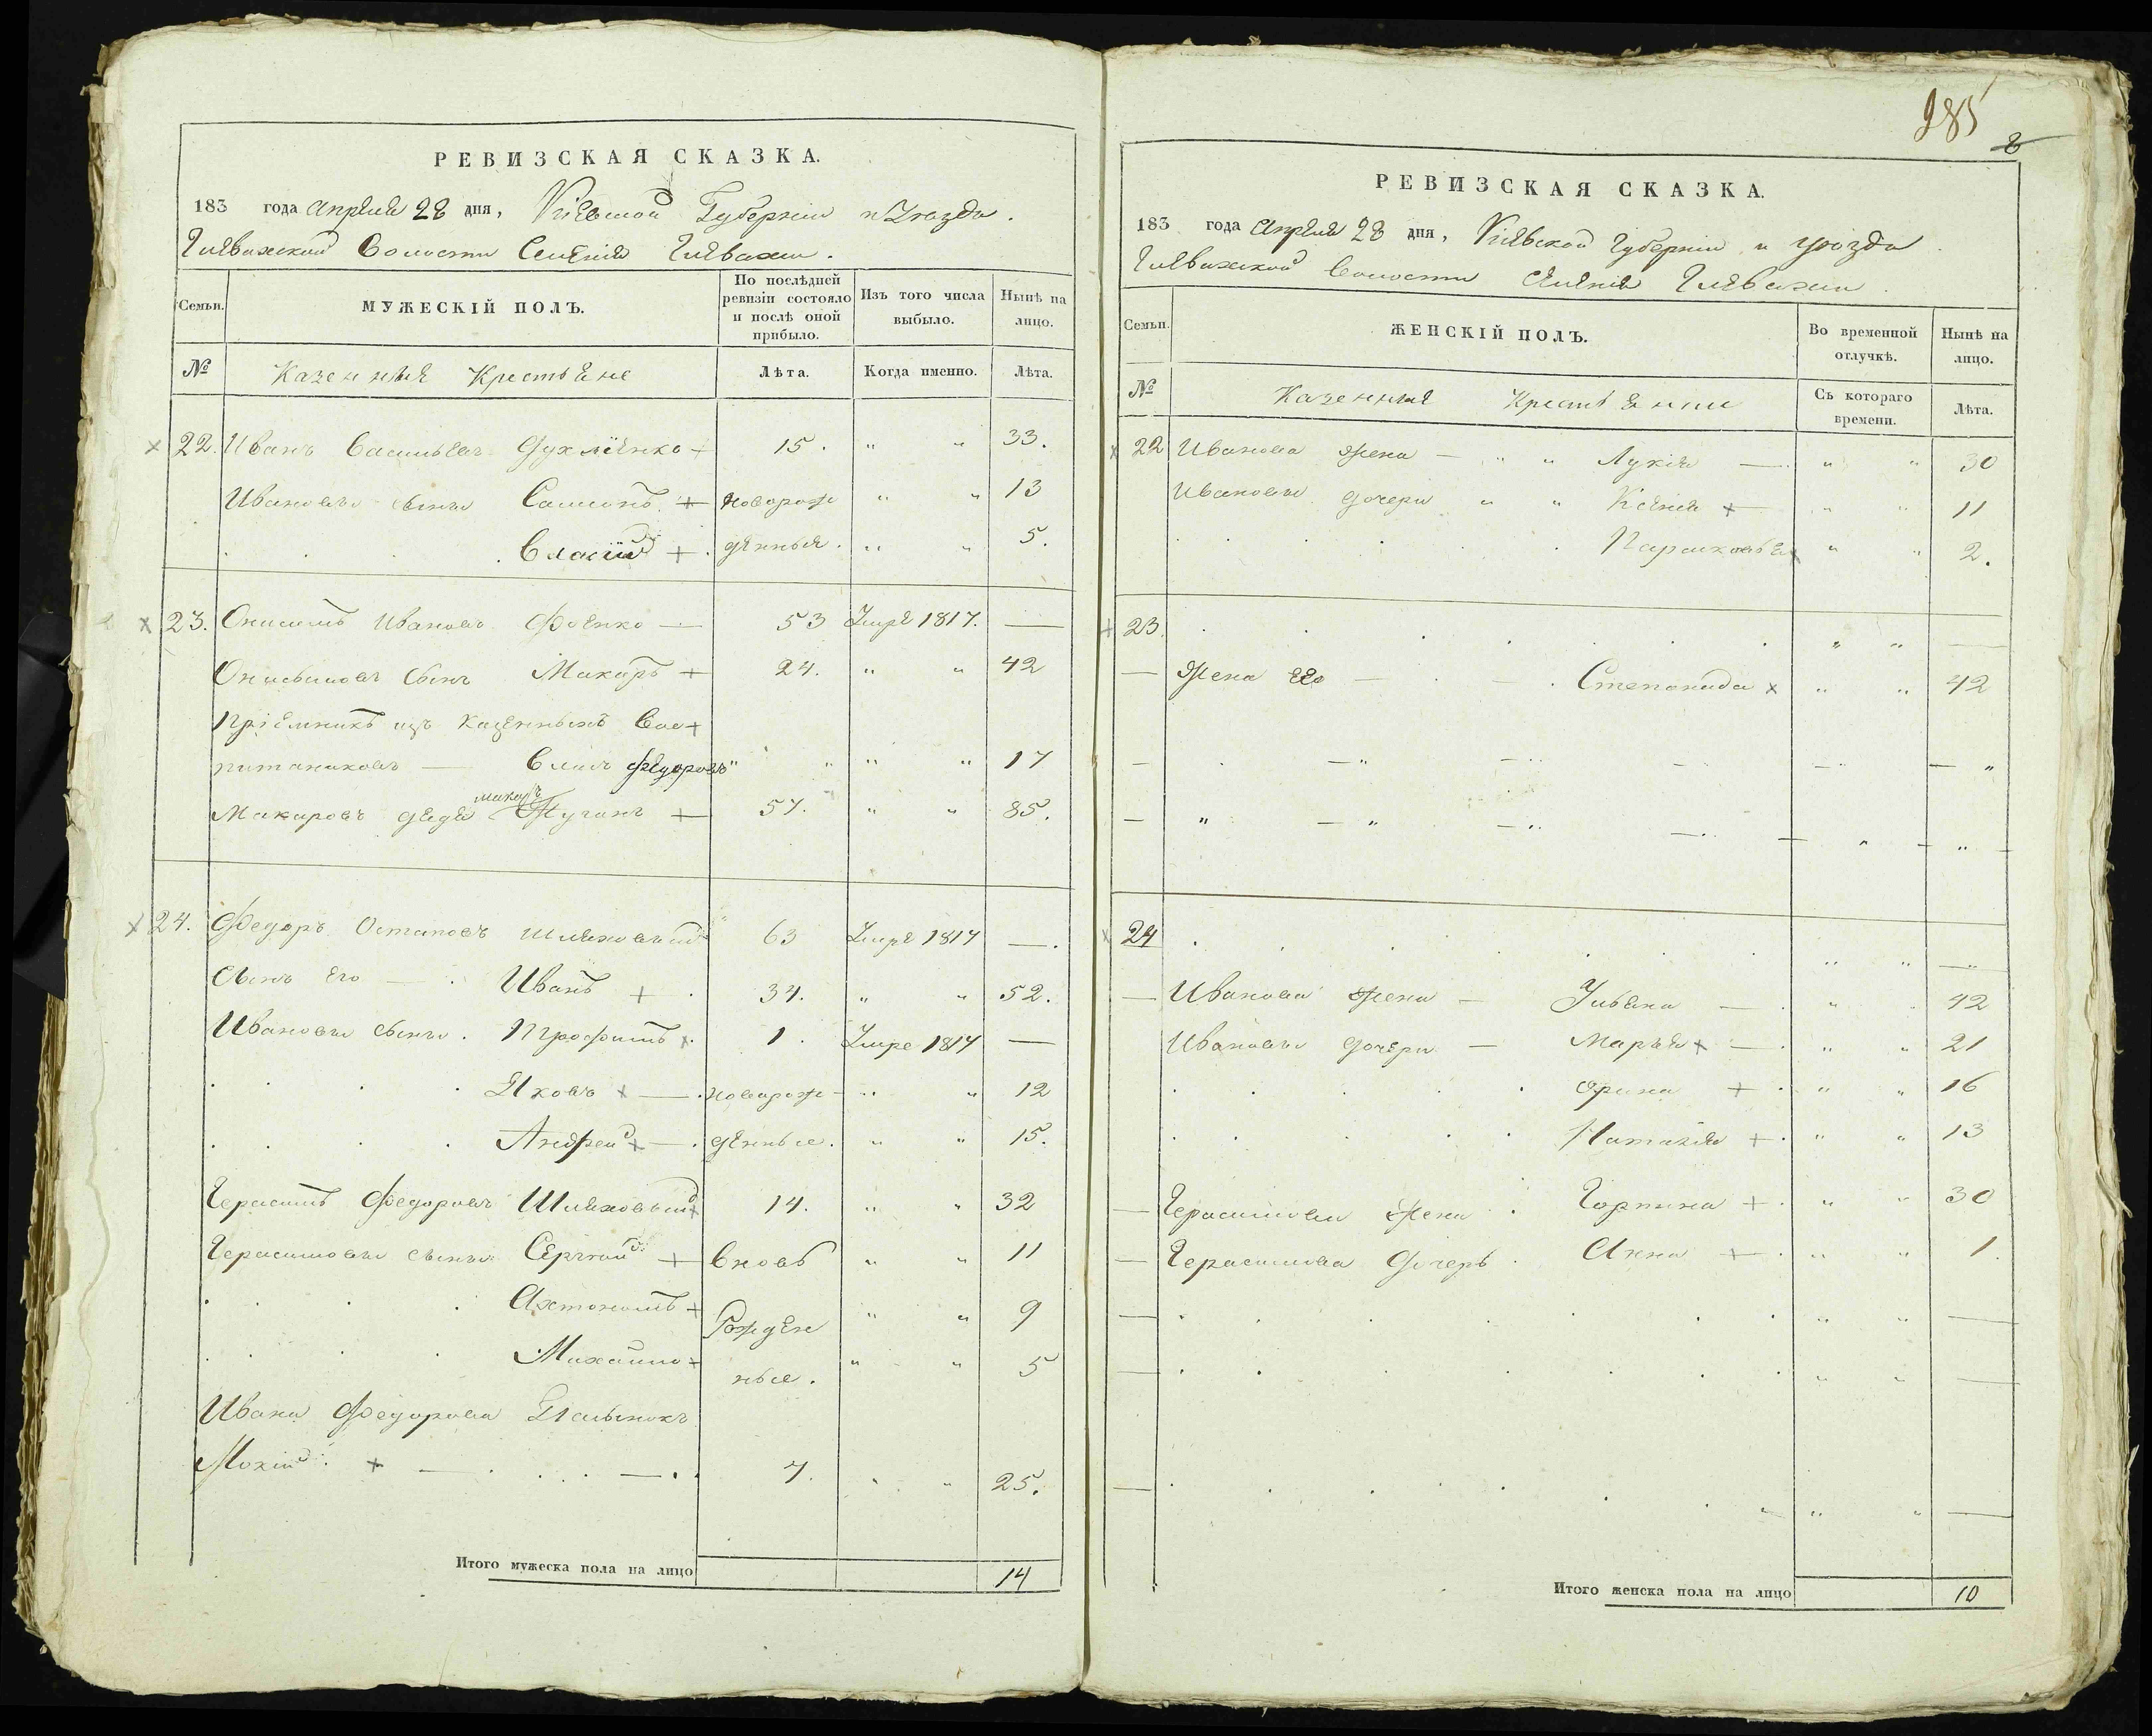 РЕВИЗСКАЯ СКАЗКА.
183 года Апреля 28 дня, Киевской Губернии и Уезда.
Гливахской Волости Селения Гливахи.
Семьи. МУЖЕСКІЙ ПОЛЪ. По послѣдней ревизіи состояло и послѣ оной прибыло. Изъ того числа выбыло. Нынѣ на лицо.
№ Казенные Крестьяне Лѣта. Когда именно. Лѣта.
22. Иванъ Васильевъ 15. " " 33.
Ивановы сыны Самсонъ + новорож " " 13
Власій + денныя. " " 5.
23. Онисимъ Ивановъ Фоенко — 53 Умре 1817. —
Онисимовъ сынъ Макаръ + 24. " " 42
Пріемникъ изъ казенныхъ Вос+
питаниковъ — Власъ Федоровъ " " " " 17
Макаровъ дядя 57. " " 85.
24. Федоръ Остаповъ Шляховый 63 Умре 1817 —.
Сынъ его — . Иванъ + . 34. " " 52.
Ивановы сыны . Трофимъ + . 1. Умре 1817 —
Яковъ + — . новорож- " " 12
Андрей + — . денные. " " 15.
Герасимъ Федоровъ Шляховый + 14. " " 32
Герасимовы сыны Сергій + вновь " " 11
Ахтономъ + Рожден " " 9
Михайло + ные. " " 5
Ивана Федорова
Мокій . + — . . . . — . . 7. " " 25.
Итого мужеска пола на лицо 14
285
8
РЕВИЗСКАЯ СКАЗКА.
183 года Апреля 28 дня, Кіевской Губерніи и уезда
Гливахской Волости Селенія Гливахи.
Семьи. ЖЕНСКІЙ ПОЛЪ. Во временной отлучкѣ. Нынѣ на лицо.
№ Казенныя Крестьянки Съ котораго времени. Лѣта.
22 Иванова жена — " " Лукія — " " 30
Ивановы дочери " " Ксенія + " " 11
Парасковья + " " 2.
23. . . . . . . " " —
— Жена его — . — . Степанида + " " 42
— . — " — " — — — "
— " — " — " — " — " — " —
24 . . . . . . " " —
— Иванова жена — Ульяна — . " . 42
Ивановы дочери — Марья + — . " " 21
Орина + . " " 16
Наталія + . " " 13
— Герасимова жена . Горпина + . " " 30
— Герасимова дочерь . Анна + . " " 1.
— . . . . . . " " —
— . . . . . . " " —
— . . . . . . " " —
Итого женска пола на лицо 10